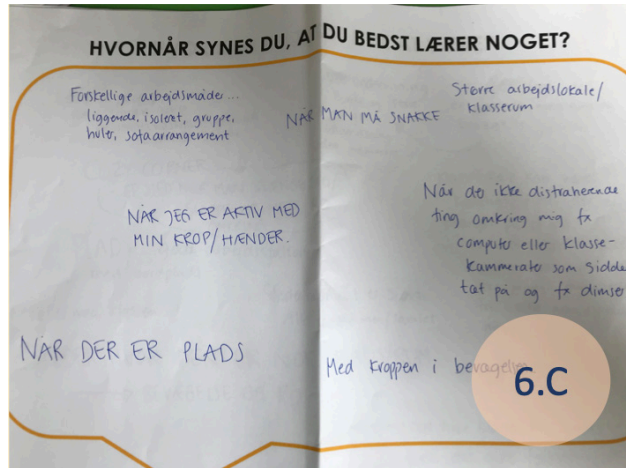 HVORNÅR SYNES DU, AT DU BEDST LÆRER NOGET?
Forskellige arbejdsmåder...
liggende, isoleret, gruppe,
huler, sofaarrangement
NÅR MAN MÅ SNAKKE
Større arbejdslokale/
klasserum
NÅR JEG ER AKTIV MED
MIN KROP/HÆNDER.
Når der ikke distraherende
ting omkring mig fx
computer eller klasse-
kammerater som sidder
tæt på og fx dimser
NÅR DER ER PLADS
Med kroppen i bevægelse
6.C